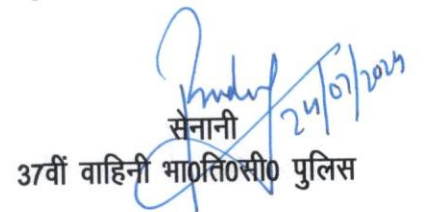 24/07/2025
सेनानी
37वीं वाहिनी भा0ति0सी0 पुलिस